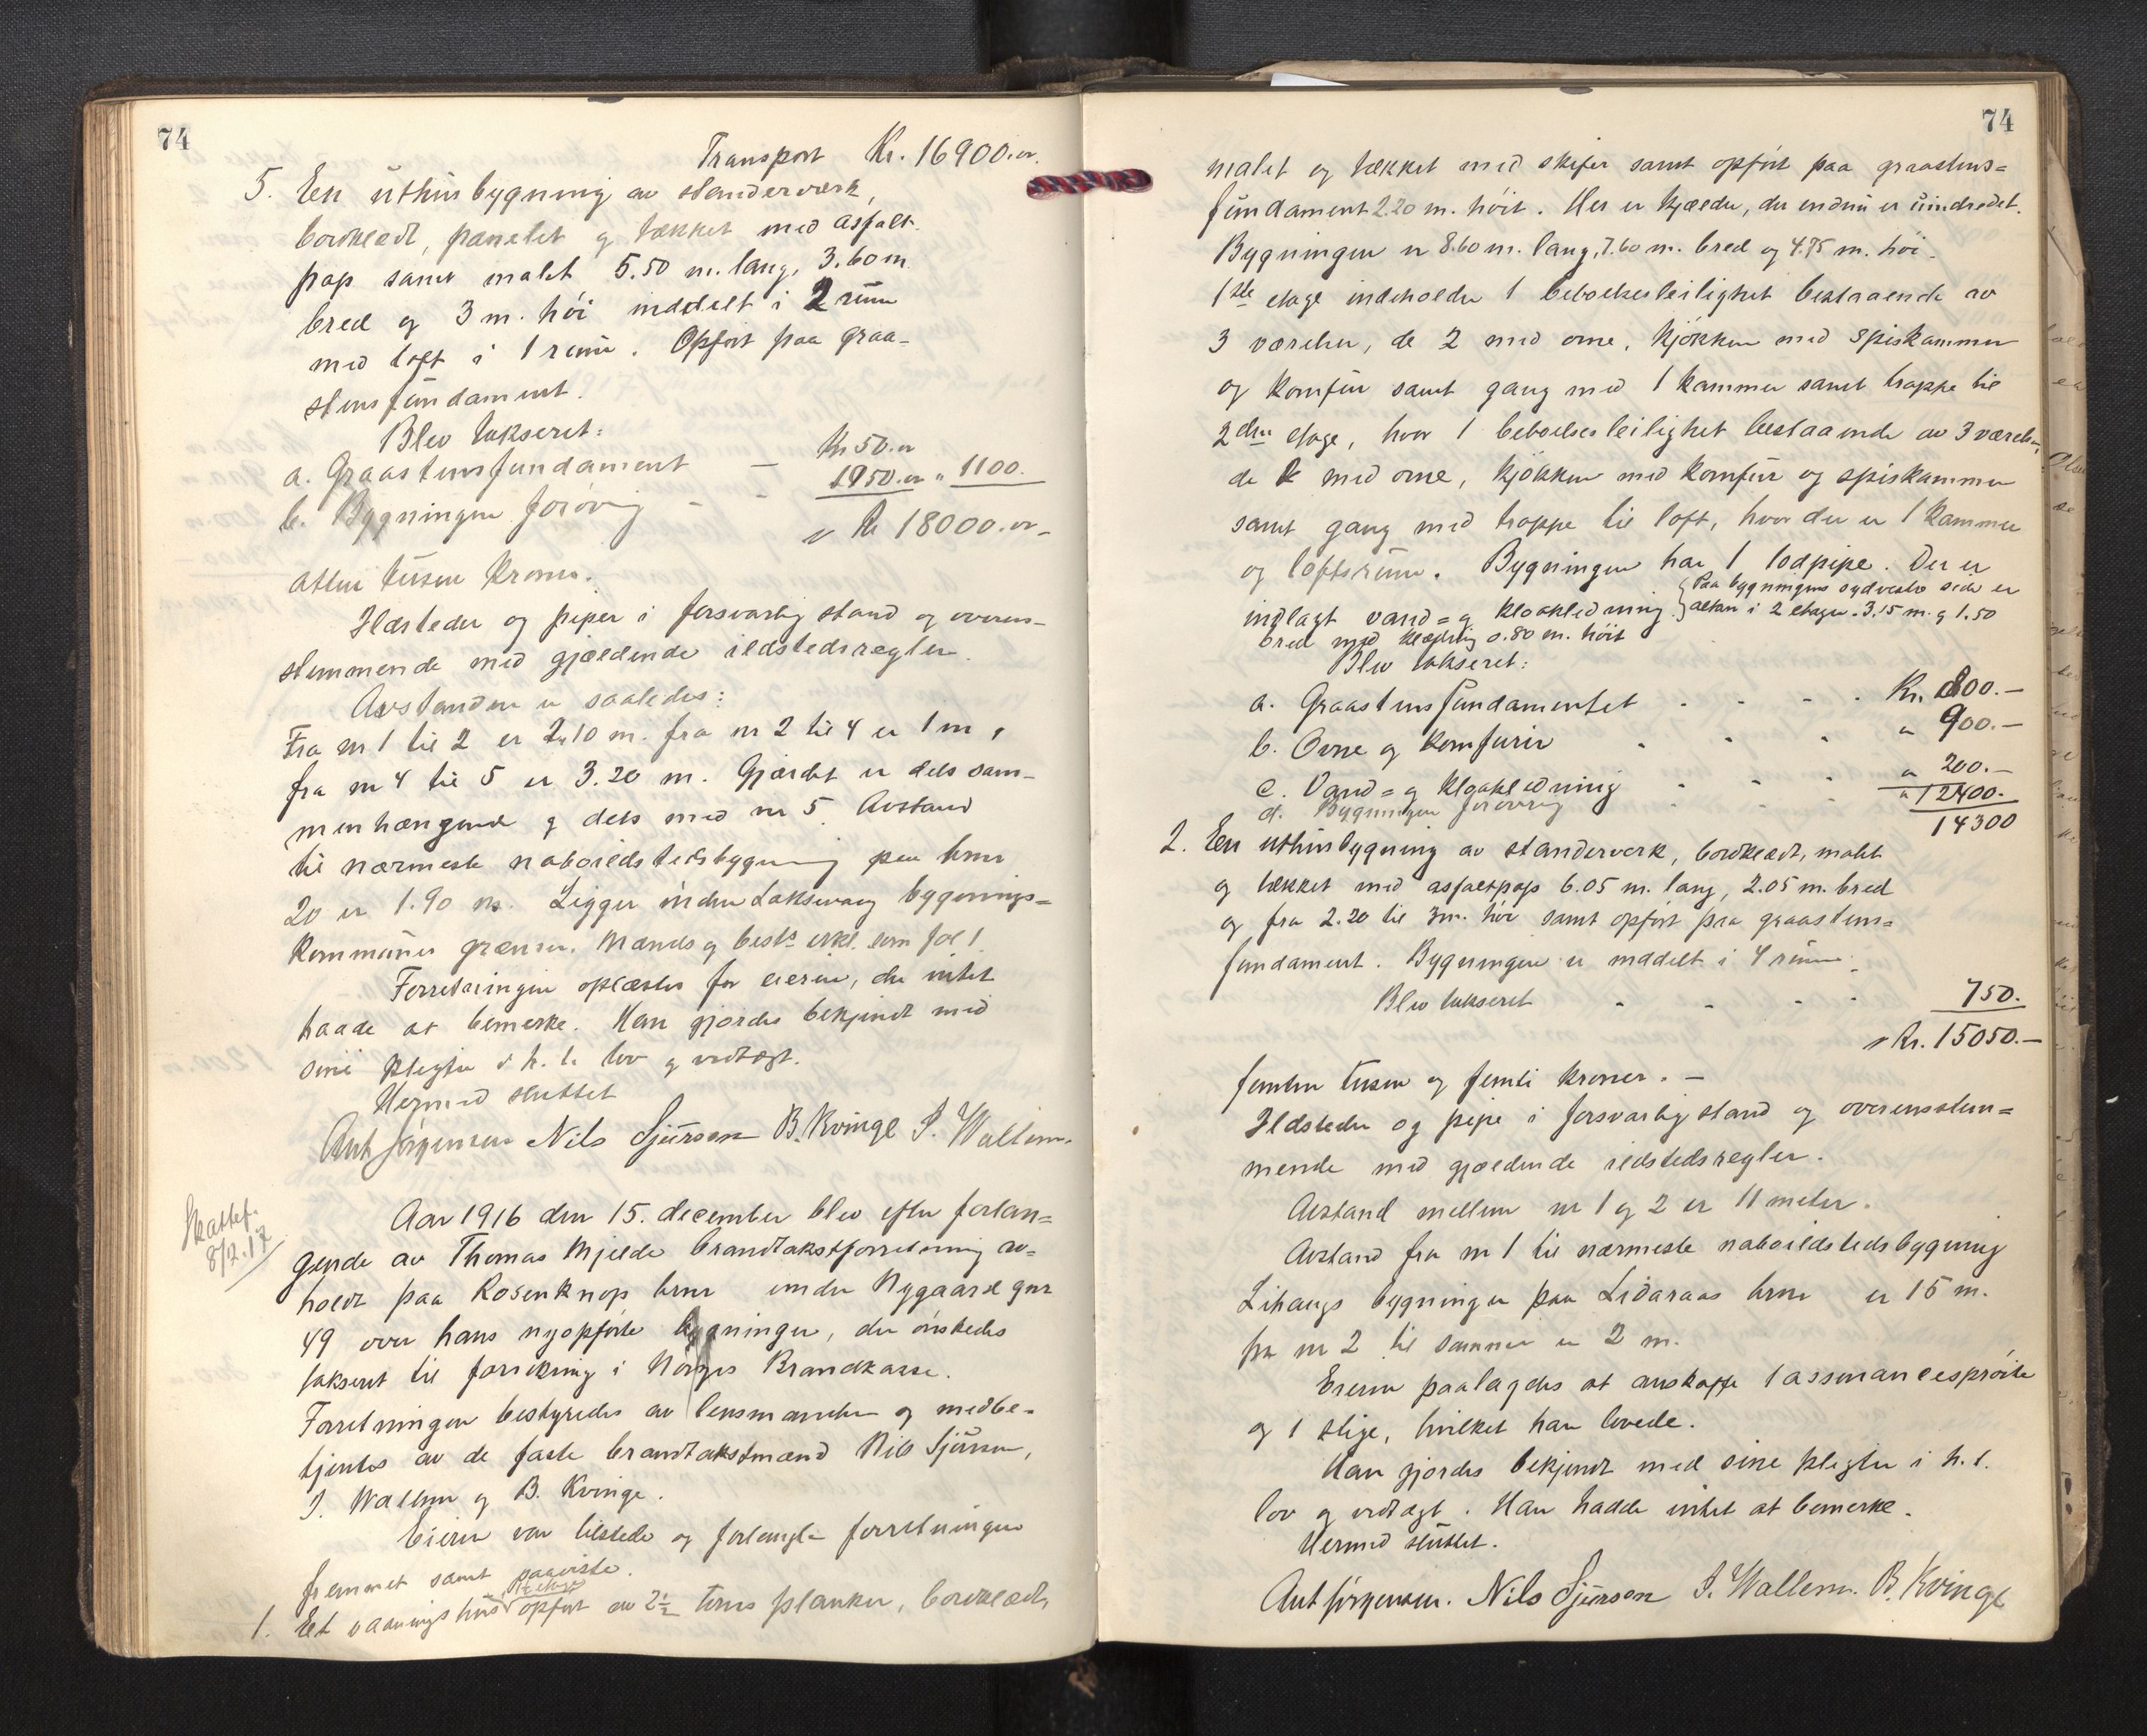 74
Transport Kr. 16900.oo.
5. Een uthusbygning av stenderverk,
bordklædt, panelet og tækket med asfalt-
pap samt malet 5.50 m. lang, 3.60 m
bred og 3 m. høi inddelt i 2 rum
med loft i 1 rum. Opført paa graa-
stensfundament.
Blev takseret:
a. Graastensfundament — Kr 50.oo
b. Bygningen forøvrig - - 1050.oo " 1100.
" Kr 18000.oo-
atten tusen kroner.
Ildsteder og piper i forsvarlig stand og overens-
stemmende med gjældende ildstedsregler.
Avstanden er saaledes:
Fra nr 1 til 2 er 2,10 m. fra nr 2 til 4 er 1 m,
fra nr 4 til 5 er 3.20 m. Gjærdet er dels sam-
menhængende og dels med nr 5. Avstand
til nærmeste naboildstedsbygning paa brnr
20 er 1.90 m. Ligger inden Laksevaag bygnings-
kommunes grænser. Mænds og best.s erkl. som fol 1.
Forretningen oplæstes for eieren, der intet
hadde at bemerke. Han gjordes bekjendt med
sine pligter i h. t. lov og vedtægt.
Hermed sluttet
Ant Jørgensen Nils Sjursen B. Kvinge I. Wallem.
Skattef.
8/2.17
Aar 1916 den 15. december blev efter forlan=
gende av Thomas Mjelde brandtakstforretning av=
holdt paa Rosenknop brnr under Nygaard gnr
49 over hans nyopførte bygninger, der ønskedes
takseret til forsikring i Norges Brandkasse.
Forretningen bestyredes av lensmanden og medbe-
tjentes av de faste brandtakstmænd Nils Sjursen,
I. Wallem og B. Kvinge.
Eieren var tilstede og forlangte forretningen
fremmet samt paaviste.
1. Et vaaningshus opført av 2½ toms planker, bordklædt,
74
malet og tækket med skifer samt opført paa graastens=
fundament 2.20 m. høit. Her er kjælder, der endnu er uindredet.
Bygningen er 8.60 m. lang, 7.60 m. bred og 4.75 m. høi.
1ste etage indeholder 1 beboelsesleilighet bestaaende av
3 værelser, de 2 med ovne, kjøkken med spiskammer
og komfur samt gang med 1 kammer samt trappe til
2den etage, hvor 1 beboelsesleilighet bestaaende av 3 værelser,
de 2 med ovne, kjøkken med komfur og spiskammer
samt gang med trappe til loft, hvor der er 1 kammer
og loftsrum. Bygningen har 1 lodpipe. Der er
indlagt vand= og kloakledning. { Paa bygningens sydvestre side er
altan i 2 etager. 3.15 m. og 1.50
bred med klædning 0.80 m. høit
Blev takseret:
a. Graastensfundamentet - - - - Kr. 800.—
b. Ovne og komfurer - - - " 900.—
c. Vand= og kloakledning - - - " 200.—
d. Bygningen forøvrig - - - " 12400.-
14300
2. Een uthusbygning av stenderverk, bordklædt, malet
og tækket med asfaltpap 6.05 m. lang, 2.05 m. bred
og fra 2.20 til 3 m. høi samt opført paa graastens=
fundament. Bygningen er inddelt i 4 rum.
Blev takseret - - - - 750.
" Kr. 15050.—
femten tusen og femti kroner. —
Ildsteder og pipe i forsvarlig stand og overensstem=
mende med gjældende ildstedsregler.
Avstand mellem nr 1 og 2 er 11 meter.
Avstand fra nr 1 til nærmeste naboildstedsbygning
Lihaugs bygninger paa Lidaraas brnr er 15 m.
fra nr 2 til samme er 2 m.
Eieren paalagdes at anskaffe 1 assurancesprøite
og 1 stige, hvilket han lovede.
Han gjordes bekjendt med sine pligter i h. t.
lov og vedtægt. Han hadde intet at bemerke.
Hermed sluttet.
Ant Jørgensen. Nils Sjursen I. Wallem. B. Kvinge